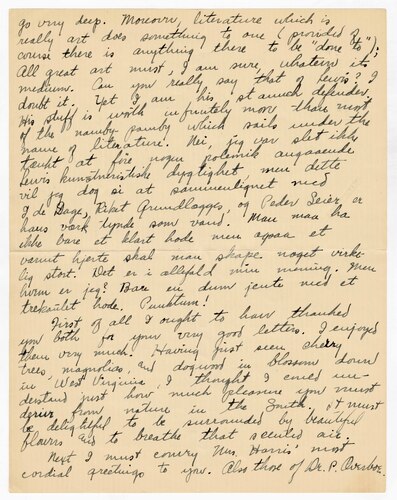 go very deep. Moreover, literature which is
really art does something to one (provided of
course there is anything there to be "done to");
All great art must, I am sure, whatever its
medium. Can you really say that of Lewis? I
doubt it. Yet I am his staunch defender.
His stuff is worth infinitely more than most
of the namby-pamby which sails under the
name of literature. Nei, jeg var slet ikke
tænkt at føre nogen polemik angaaende
Lewis kunstneriske dygtighet men dette
vil jeg dog si at sammenlignet med
I de Dage, Riket Grundlægges, og Peder Seier er
hans verk tynde som vand. Man maa ha
ikke bare et klart hode men ogsaa et
varmt hjerte skal man skape noget virke-
lig stort. Det er i allefald min mening. Men
hvem er jeg? Bare en dum jente med et
trekantet hode. Punktum!
First of all I ought to have thanked
you both for your very good letters. I enjoyed
them very much. Having just seen cherry
trees, magnolias, and dogwood in blossom down
in West Virginia, I thought I could un-
derstand just how much pleasure you must
derive from nature in the South. It must
be delightful to be surrounded by beautiful
flowers and to breathe that scented air.
Next I must convey Mrs. Harris' most
cordial greetings to you. Also those of Dr. P.